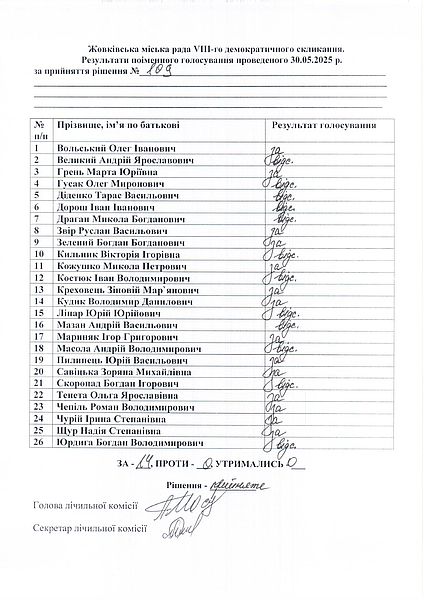 Жовківська міська рада VIII-го демократичного скликання.
Результати поіменного голосування проведеного 30.05.2025 р.
за прийняття рішення № 109
№ п/п Прізвище, ім’я по батькові Результат голосування
1 Вольський Олег Іванович за
2 Великий Андрій Ярославович відс.
3 Грень Марта Юріївна за
4 Гусак Олег Миронович відс.
5 Діденко Тарас Васильович відс.
6 Дорош Іван Іванович відс.
7 Драган Микола Богданович відс.
8 Звір Руслан Васильович за
9 Зелений Богдан Богданович за
10 Кильник Вікторія Ігорівна відс.
11 Кожушко Микола Петрович за
12 Костюк Іван Володимирович відс.
13 Креховець Зіновій Мар`янович за
14 Кудик Володимир Данилович за
15 Ліпар Юрій Юрійович відс.
16 Мазан Андрій Васильович відс.
17 Мариняк Ігор Григорович за
18 Масола Андрій Володимирович відс.
19 Пилипець Юрій Васильович за
20 Савінька Зоряна Михайлівна за
21 Скоропад Богдан Ігорович відс.
22 Тенета Ольга Ярославівна за
23 Чепіль Роман Володимирович за
24 Чурій Ірина Степанівна за
25 Щур Надія Степанівна за
26 Юрдига Богдан Володимирович відс.
ЗА - 14, ПРОТИ - 0, УТРИМАЛИСЬ 0
Рішення - прийняте
Голова лічильної комісії
Секретар лічильної комісії